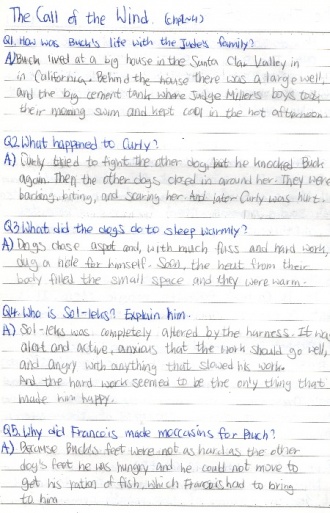 The Call of the Wind. (chp1-4)
Q1. How was Buck's life with the Jude's family?
A) Buck lived at a big house in the Santa Clar Valley in
in California. Behind the house there was a large well,
and the big cement tank where Judge Miller's boys took
their morning swim and kept cool in the hot afternoon.
Q2. What happened to Curly?
A) Curly tried to fight the other dog, but he knocked Buck
again. Then the other dogs closed in around her. They were
barking, biting, and scaring her. And later Curly was hurt.
Q3. What did the dogs do to sleep warmly?
A) Dogs chose a spot and, with much fuss and hard work,
dug a hole for himself. Soon, the heat from their
body filled the small space and they were warm.
Q4. Who is Sol-leks? Explain him.
A) Sol-leks was completely altered by the harness. It was
alert and active, anxious that the work should go well,
and angry with anything that slowed his work.
And the hard work seemed to be the only thing that
made him happy.
Q5. Why did Francois made moccasins for Buch?
A) Because Buck's feet were not as hard as the other
dog's feet he was hungry and he could not move to
get his ration of fish, which Francois had to bring
to him